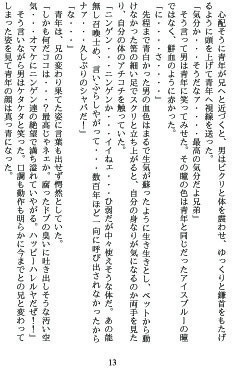 心配そうに青年が兄へと近づくと、男はピクリと体を震わせ、ゆっくりと鎌首をもたげ
るように頭を上げて青年へ視線を送った。
「気分か……？　そうだな、最高の気分だよ兄弟」
そう言って男は青年に笑ってみせた。その瞳の色は青年と同じだったアイスブルーの瞳
ではなく、鮮血のように赤かった。
「に……、さ……」
先程まで青白かった男の血色はまるで生気が蘇ったように生き生きとし、ベットから動
けなかった筈の細い足でスクリと立ち上がると、自分の身なりが気になるのか両手を見た
り、自分の体のアチコチを触っていた。
「ニンゲン……、ニンゲンか……、イイねェ……、ひ弱だが中々使えそうな体だ。あの能
無しだ喚ェめ、言いふらしやがって……、数百年ほど一向に呼び出されなかったから
なァ……、久しぶりのシャバだァー」
青年は、兄の変わり果てた姿に言葉も出せず愕然としていた。
「しかも何だココは……？最高じゃネェか。腐ったドブの臭いに吐き出しそうな汚い空
気…、オマケにニンゲン達の絶望で満ち溢れていやがる。ハッピーハレルヤだぜ！！」
そう言いながら男はケタケタと笑った。口調も動作も明らかに今までとの兄と変わって
しまった姿を見て青年の顔は真っ青になった。
13